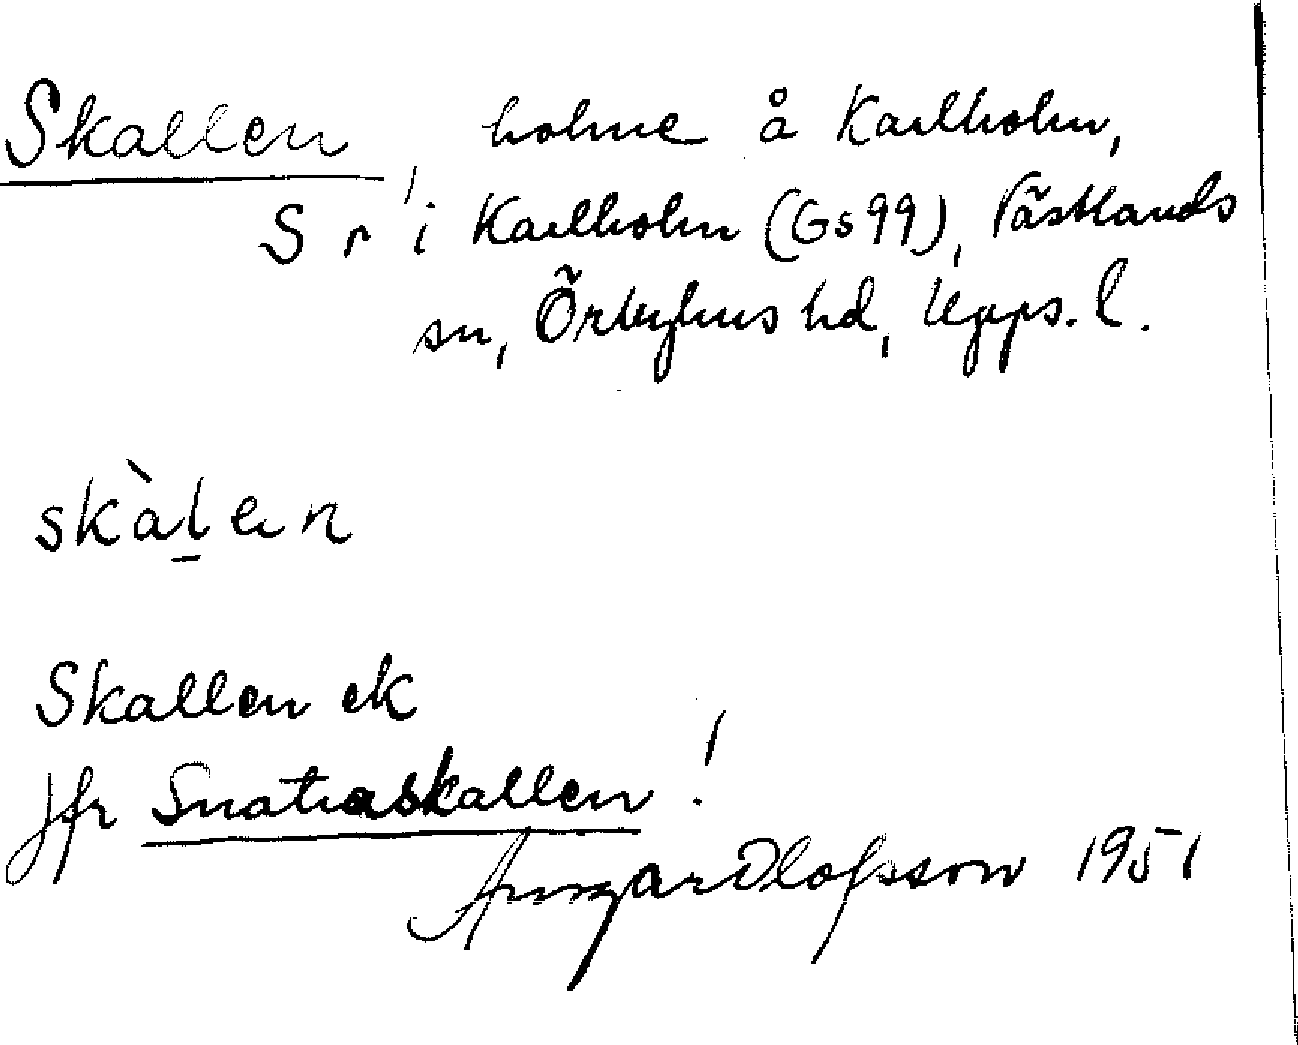 Skallen, holme å Karlholm,
S r i Karlholm (Gs 99), Västlands
sn, Örbyhus hd, Upps. l.
skàlen
Skallen ek
jfr Snatraskallen!
Olofsson 1951